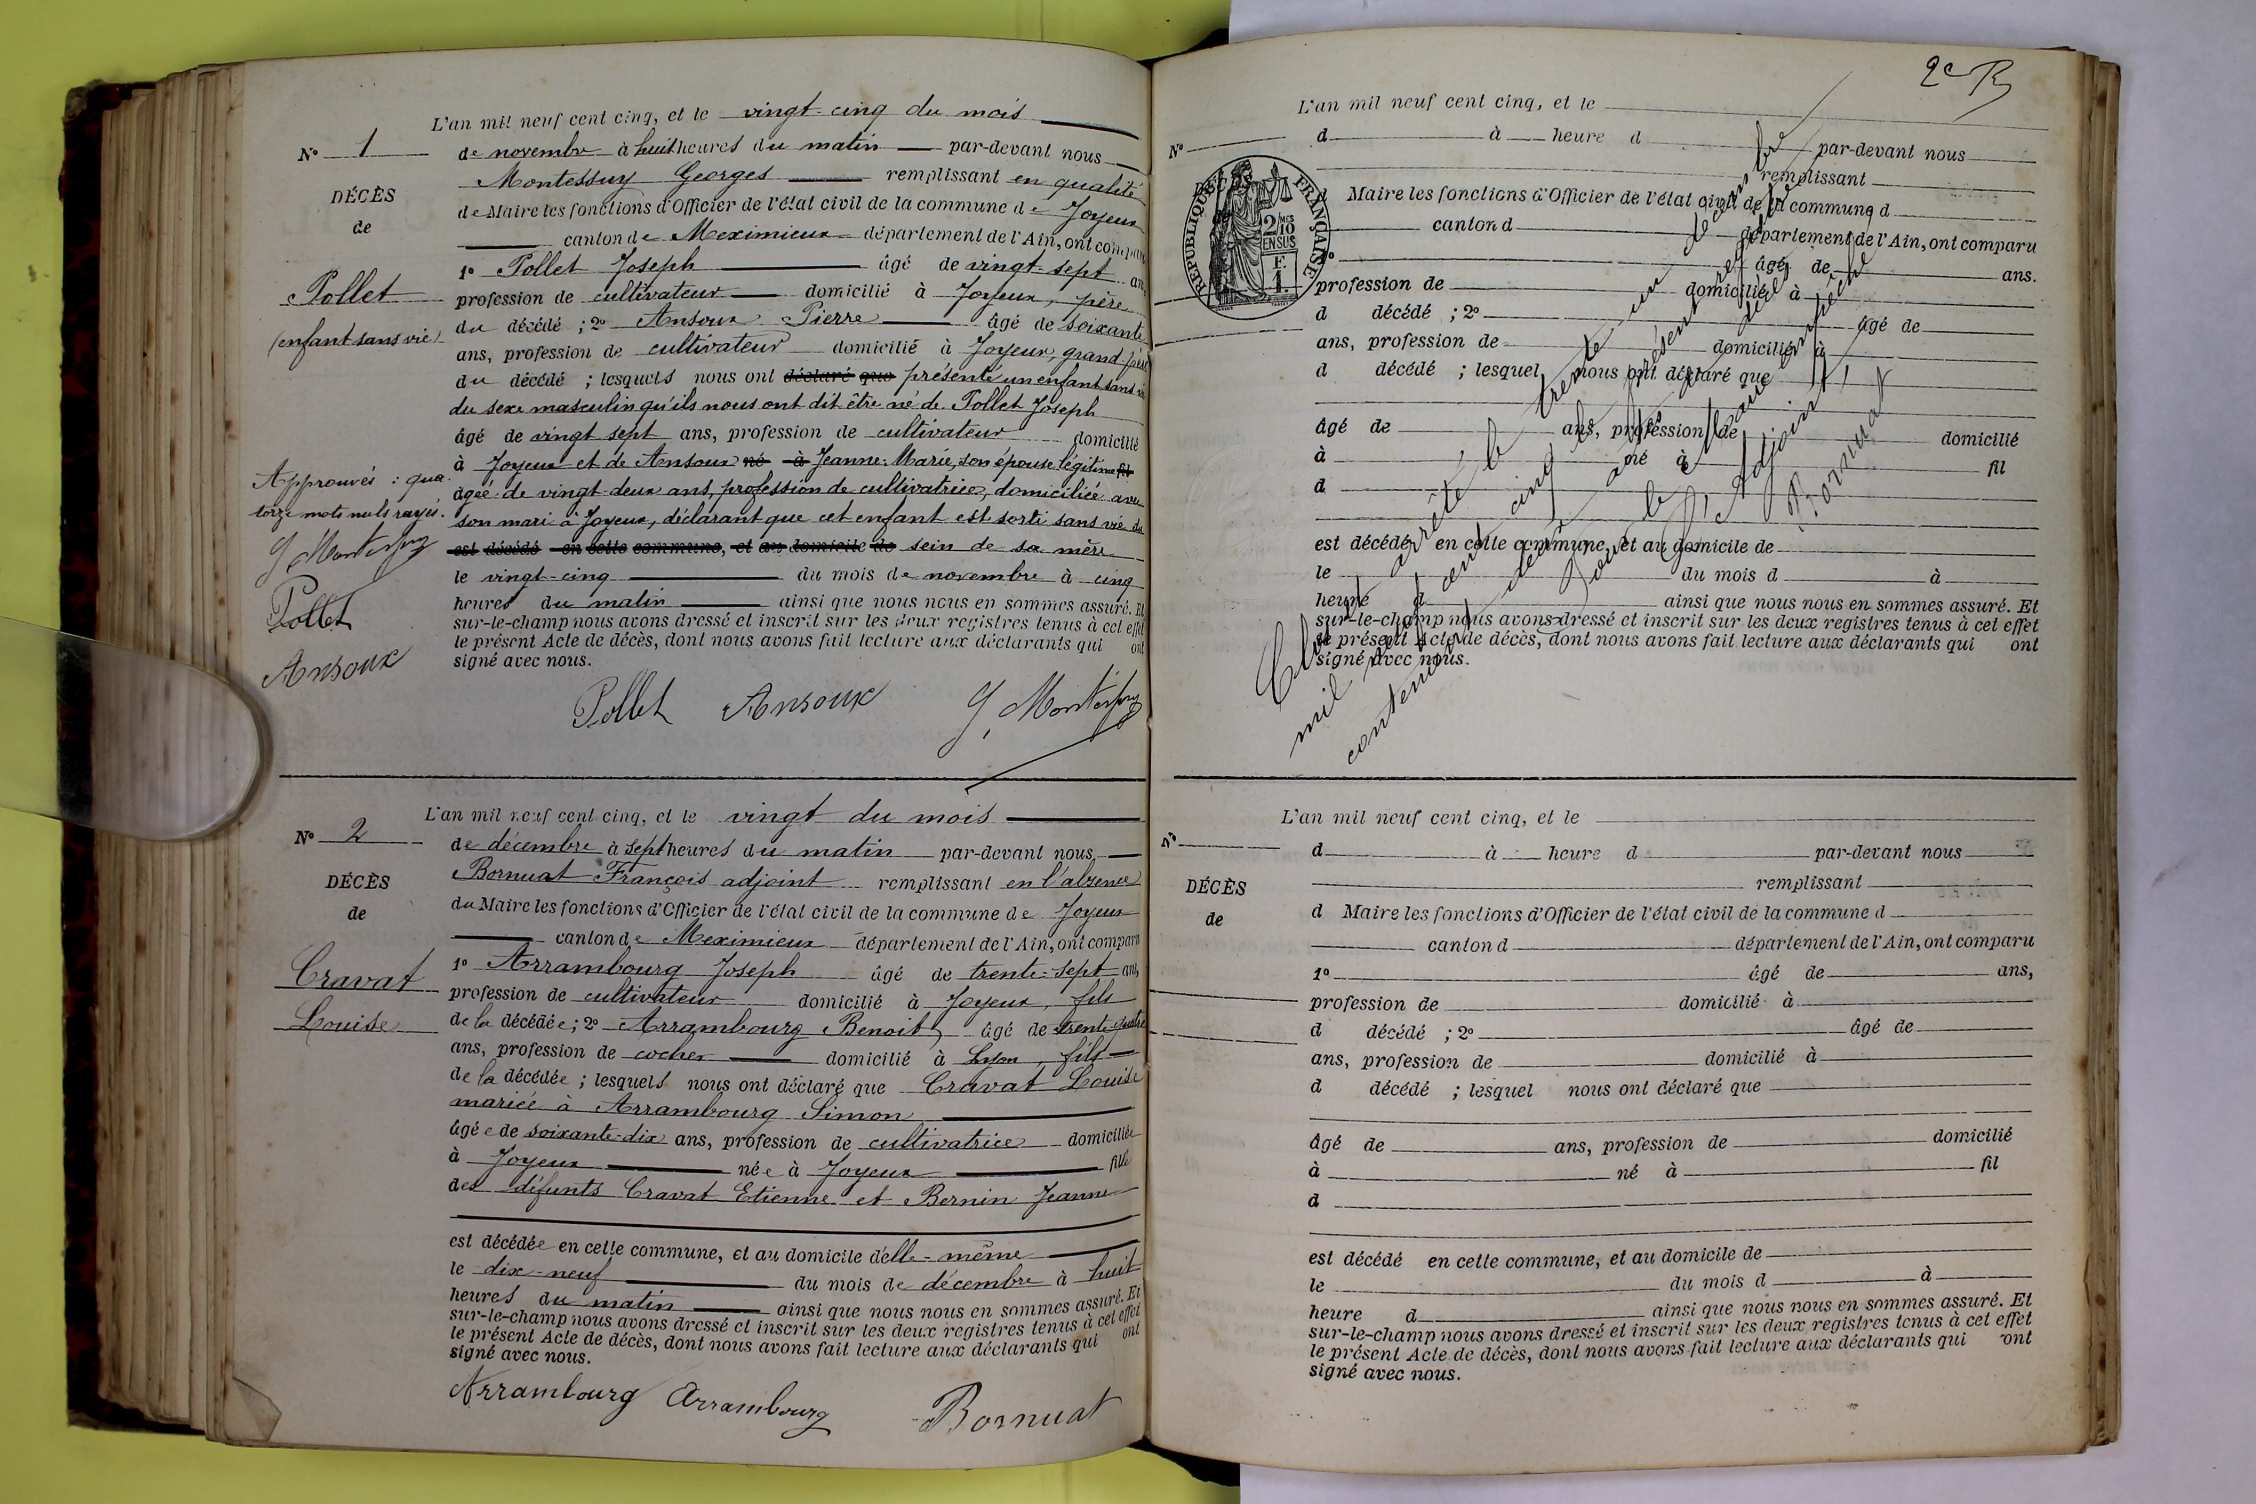 L'an mil neuf cent cinq, et le vingt-cinq du mois
N° 1
de novembre à huit heures du matin par-devant nous
Montessuy Georges remplissant en qualité
DÉCÈS
de Maire les fonctions d'Officier de l'état civil de la commune de Joyeux
de
canton de Meximieux département de l'Ain, ont comparu
1° Pollet Joseph âgé de vingt-sept ans
Pollet
profession de cultivateur domicilié à Joyeux, père
(enfant sans vie)
du décédé ; 2° Ansoux Pierre âgé de soixante
ans, profession de cultivateur domicilié à Joyeux, grand-père
du décédé ; lesquels nous ont déclaré que présenté un enfant sans vie
du sexe masculin qu'ils nous ont dit être né de Pollet Joseph
âgé de vingt sept ans, profession de cultivateur domicilié
à Joyeux et de Ansoux né à Jeanne-Marie, son épouse légitime fil
Approuvés : qua-
agée de vingt-deux ans, profession de cultivatrice, domiciliée avec
torze mots nuls rayés.
son mari à Joyeux, déclarant que cet enfant est sorti sans vie du
est décédé en cette commune, et au domicile de sein de sa mère
G. Montessuy
le vingt-cinq du mois de novembre à cinq
Pollet
heures du matin ainsi que nous nous en sommes assuré. Et
sur-le-champ nous avons dressé et inscrit sur les deux registres tenus à cet effet
le présent Acte de décès, dont nous avons fait lecture aux déclarants qui ont
Ansoux
signé avec nous.
Pollet Ansoux G. Montessuy
L'an mil neuf cent cinq, et le vingt du mois
N° 2
de décembre à sept heures du matin par-devant nous
Bornuat François adjoint remplissant en l'absence
DÉCÈS
du Maire les fonctions d'Officier de l'état civil de la commune de Joyeux
de
canton de Meximieux département de l'Ain, ont comparu
1° Arrambourg Joseph âgé de trente-sept ans,
Cravat
profession de cultivateur domicilié à Joyeux, fils
Louise
de la décédée ; 2° Arrambourg Benoit, âgé de trente-quatre
ans, profession de cocher domicilié à Lyon, fils
de la décédée ; lesquels nous ont déclaré que Cravat Louise
mariée à Arrambourg Simon
âgée de soixante-dix ans, profession de cultivatrice domiciliée
à Joyeux née à Joyeux fille
des défunts Cravat Etienne et Bernin Jeanne
est décédée en cette commune, et au domicile d'elle-même
le dix-neuf du mois de décembre à huit
heures du matin ainsi que nous nous en sommes assuré. Et
sur-le-champ nous avons dressé et inscrit sur les deux registres tenus à cet effet
le présent Acte de décès, dont nous avons fait lecture aux déclarants qui ont
signé avec nous.
Arrambourg Arrambourg Bornuat
2e R
L'an mil neuf cent cinq, et le
N°
d à heure d par-devant nous
remplissant
d Maire les fonctions d'Officier de l'état civil de la commune d
canton d département de l'Ain, ont comparu
RÉPUBLIQUE FRANÇAISE
2/10 EN SUS
âgé de ans.
profession de domicilié à
d décédé ; 2° âgé de
ans, profession de domicilié à
d décédé ; lesquel nous ont déclaré que
âgé de ans, profession de domicilié
à né à fil
d
est décédé en cette commune, et au domicile de
le du mois d à
heure d ainsi que nous nous en sommes assuré. Et
sur-le-champ nous avons dressé et inscrit sur les deux registres tenus à cet effet
le présent Acte de décès, dont nous avons fait lecture aux déclarants qui ont
signé avec nous.
Clos et arrêté le trente un décembre
mil neuf cent cinq le présent registre
contenant deux actes de décès
Pour le Maire empêché
L'Adjoint,
Bornuat
L'an mil neuf cent cinq, et le
N°
d à heure d par-devant nous
remplissant
DÉCÈS
d Maire les fonctions d'Officier de l'état civil de la commune d
de
canton d département de l'Ain, ont comparu
1° âgé de ans,
profession de domicilié à
d décédé ; 2° âgé de
ans, profession de domicilié à
d décédé ; lesquel nous ont déclaré que
âgé de ans, profession de domicilié
à né à fil
d
est décédé en cette commune, et au domicile de
le du mois d à
heure d ainsi que nous nous en sommes assuré. Et
sur-le-champ nous avons dressé et inscrit sur les deux registres tenus à cet effet
le présent Acte de décès, dont nous avons fait lecture aux déclarants qui ont
signé avec nous.